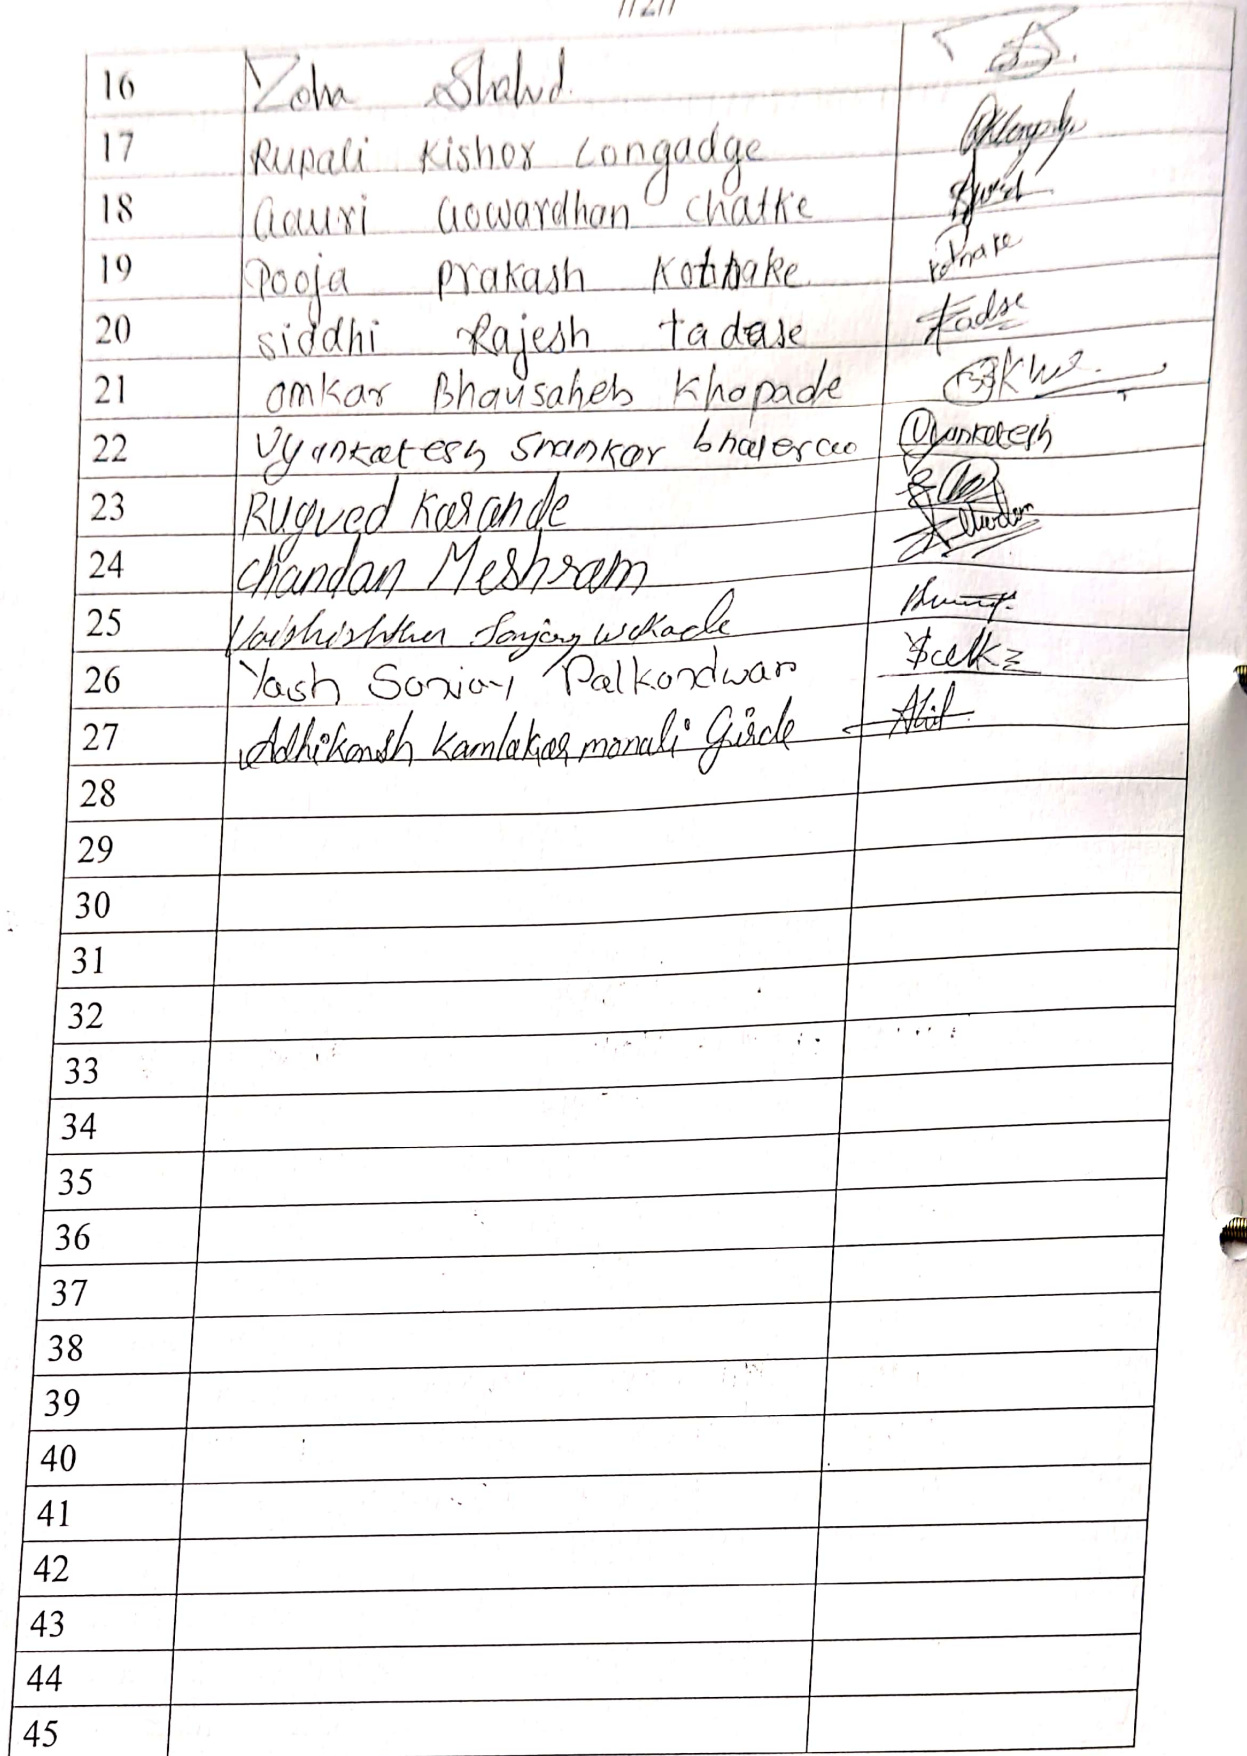 //2//
16 Zoha Shahid.
17 Rupali Kishor Longadge
18 Gauri Gowardhan Chatke
19 Pooja Prakash Kotnake. Kotnake
20 Siddhi Rajesh tadase Tadse
21 Omkar Bhausaheb Khopade
22 Vyankatesh Shankar bhalerao Vyankatesh
23 Rugved Karande
24 Chandan Meshram
25 Sanjay
26 Yash Sanjay Palkondwar
27 Adhikansh Kamlakar monali Girde
28
29
30
31
32
33
34
35
36
37
38
39
40
41
42
43
44
45